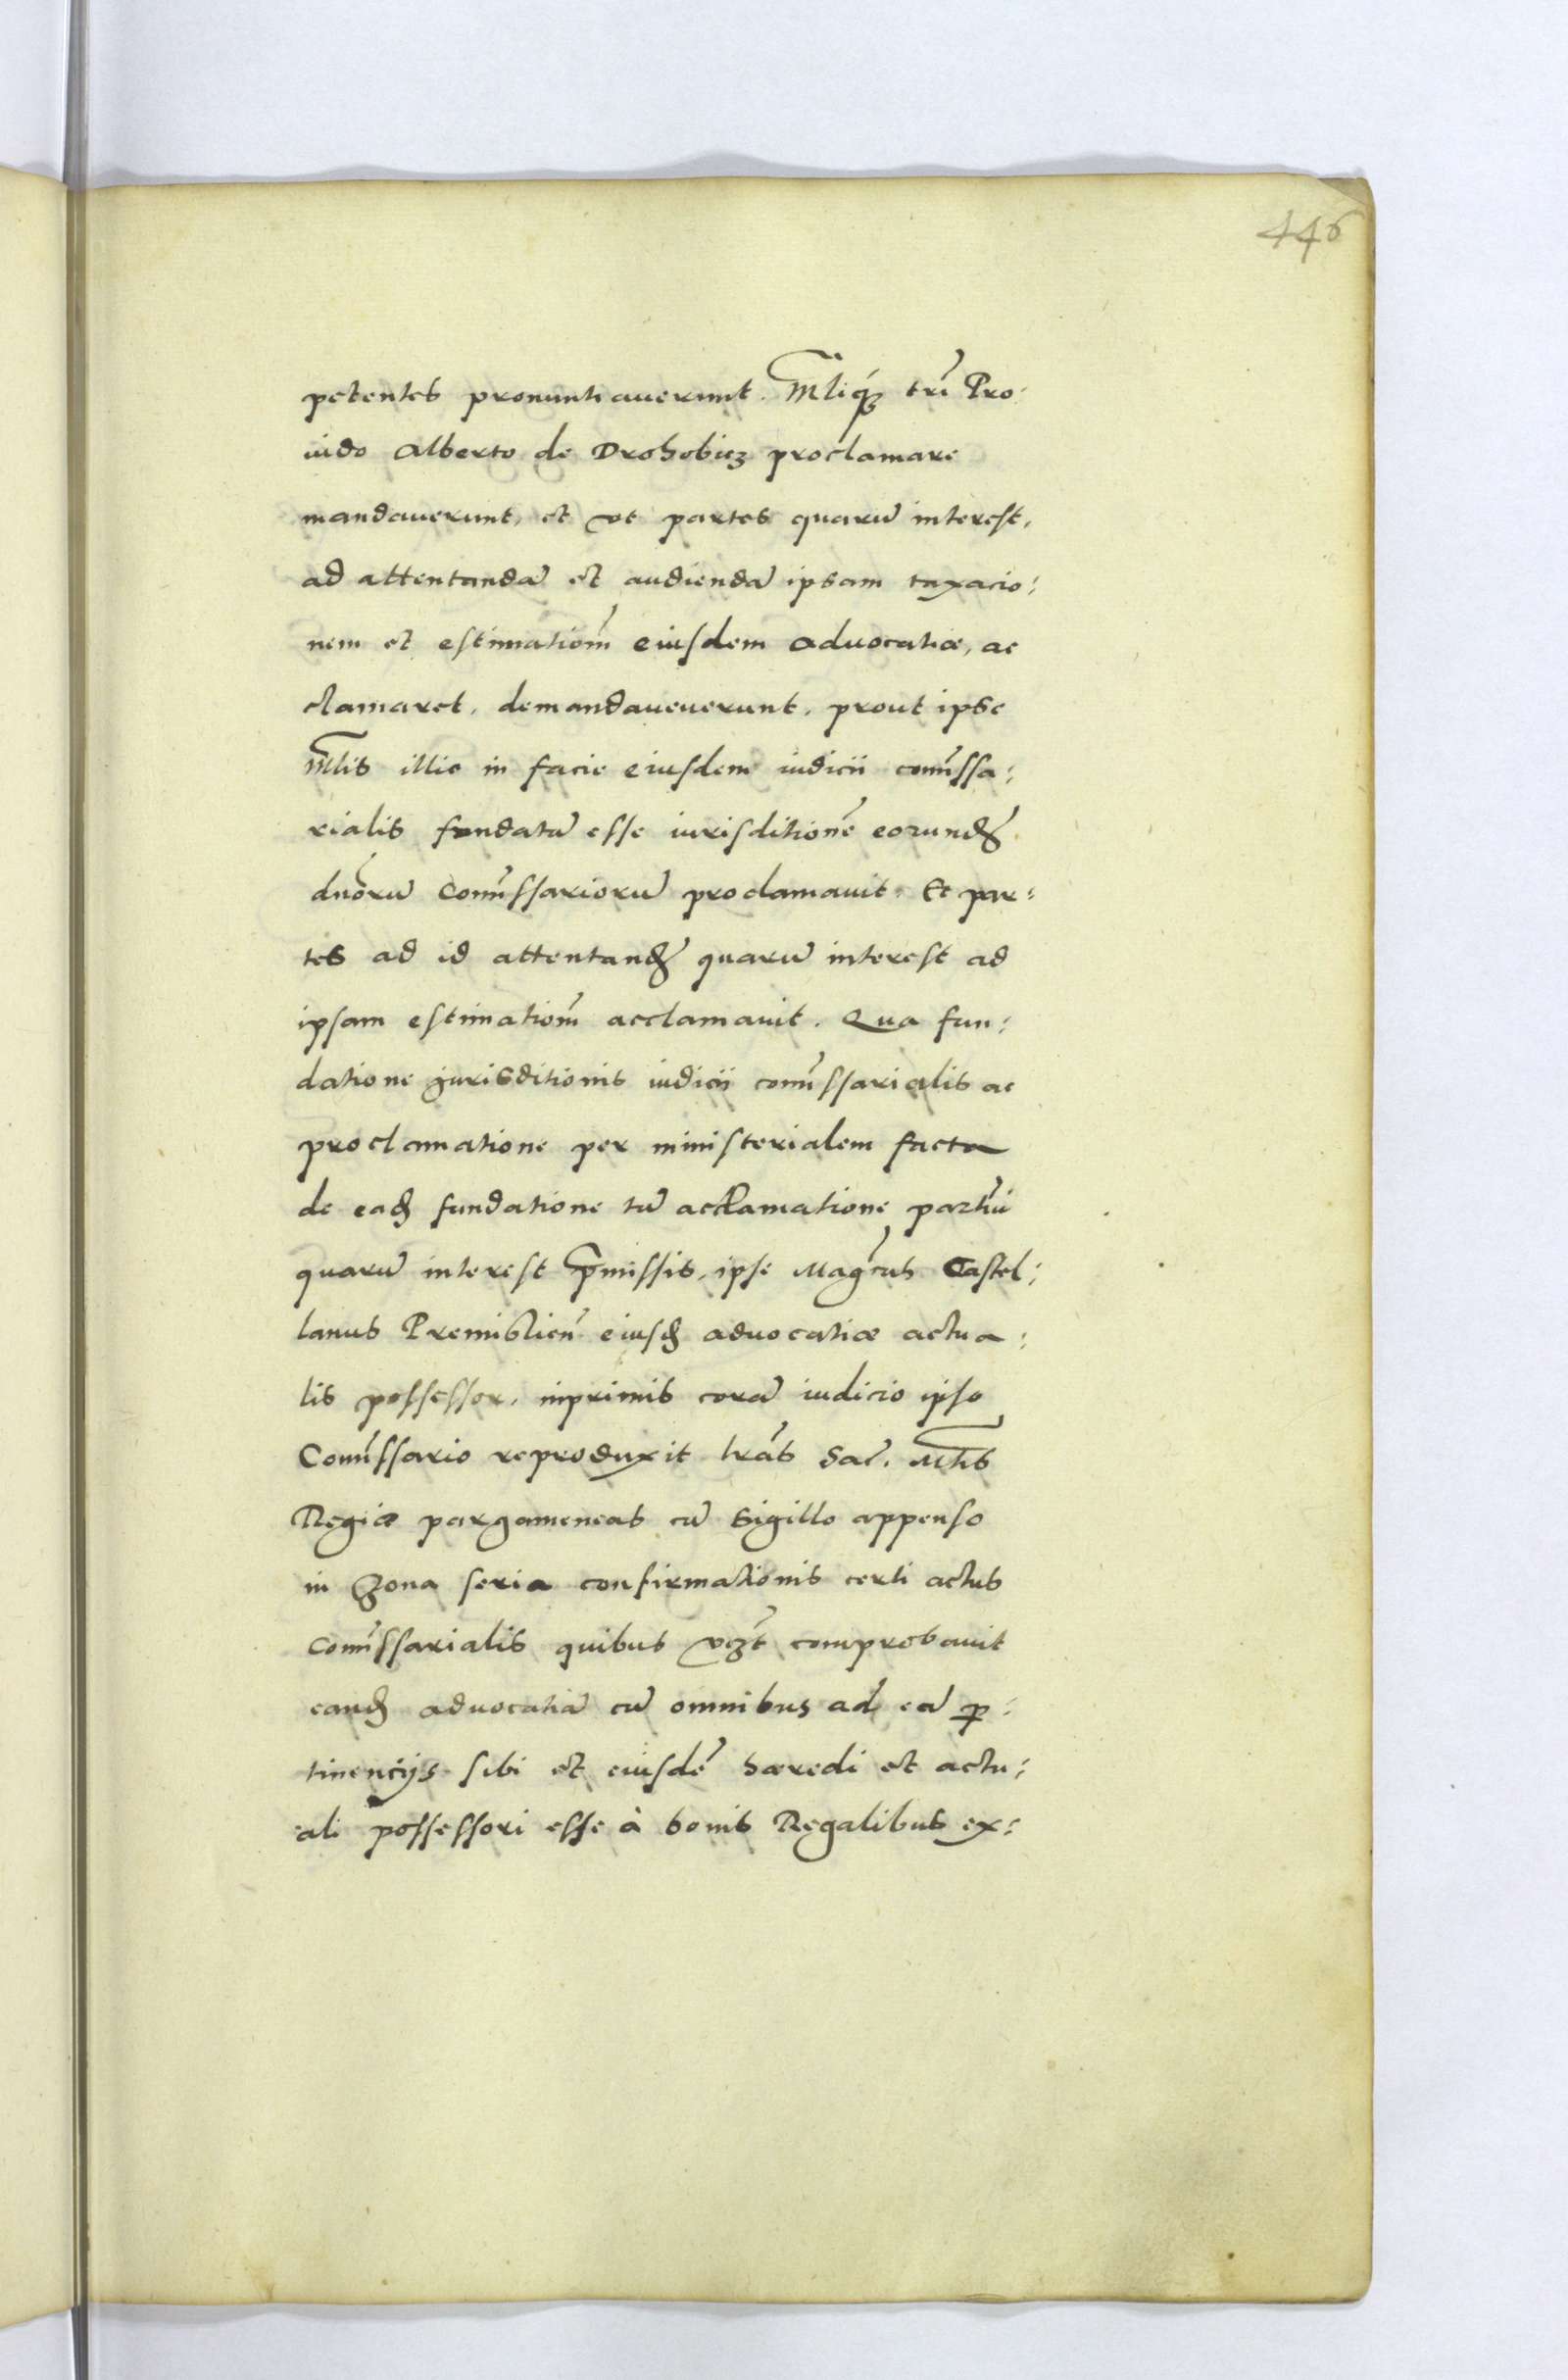 446
petentes pronuntiauerunt. Mliq́ꝫ trī Pro:
uido Alberto de Drohobicz proclamare
mandauerunt, et vt partes quarū interest,
ad attentandā et audiendā ipsam taxacio:
nem et estimatiom̄ eiusdem Aduocatiæ, ac
clamaret, demandaueuerunt, prout ipse
Mlis illic in facie eiusdem iudicii com̄issa:
rialis fundatā esse iurisditionē eorundꝫ
duorū Com̄issariorū proclamauit. Et par:
tes ad id attentandꝫ quarū interest ad
ipsam estimatiom̄ acclamauit. Qua fun:
datione jurisditionis iudicii com̄issarialis ac
proclamatione per ministerialem facta
de eadꝫ fundatione tū acclamatione partiū
quarū interest p̄missis, ipse Magcus Castel:
lanus Premislien̄ eiusdꝫ aduocatiæ actua:
lis possessor, inprimis corā iudicio ipso
Com̄issario reproduxit lrās Sac. Mtis
Regiæ pargameneas cū sigillo appenso
in Zona seria confirmationis certi actus
com̄issarialis quibus vꝫt comprobauit
eandꝫ aduocatiā cū omnibus ad eā ꝑ:
tinencijs sibi et eiusdē hæredi et actu:
ali possessori esse à bonis Regalibus ex: